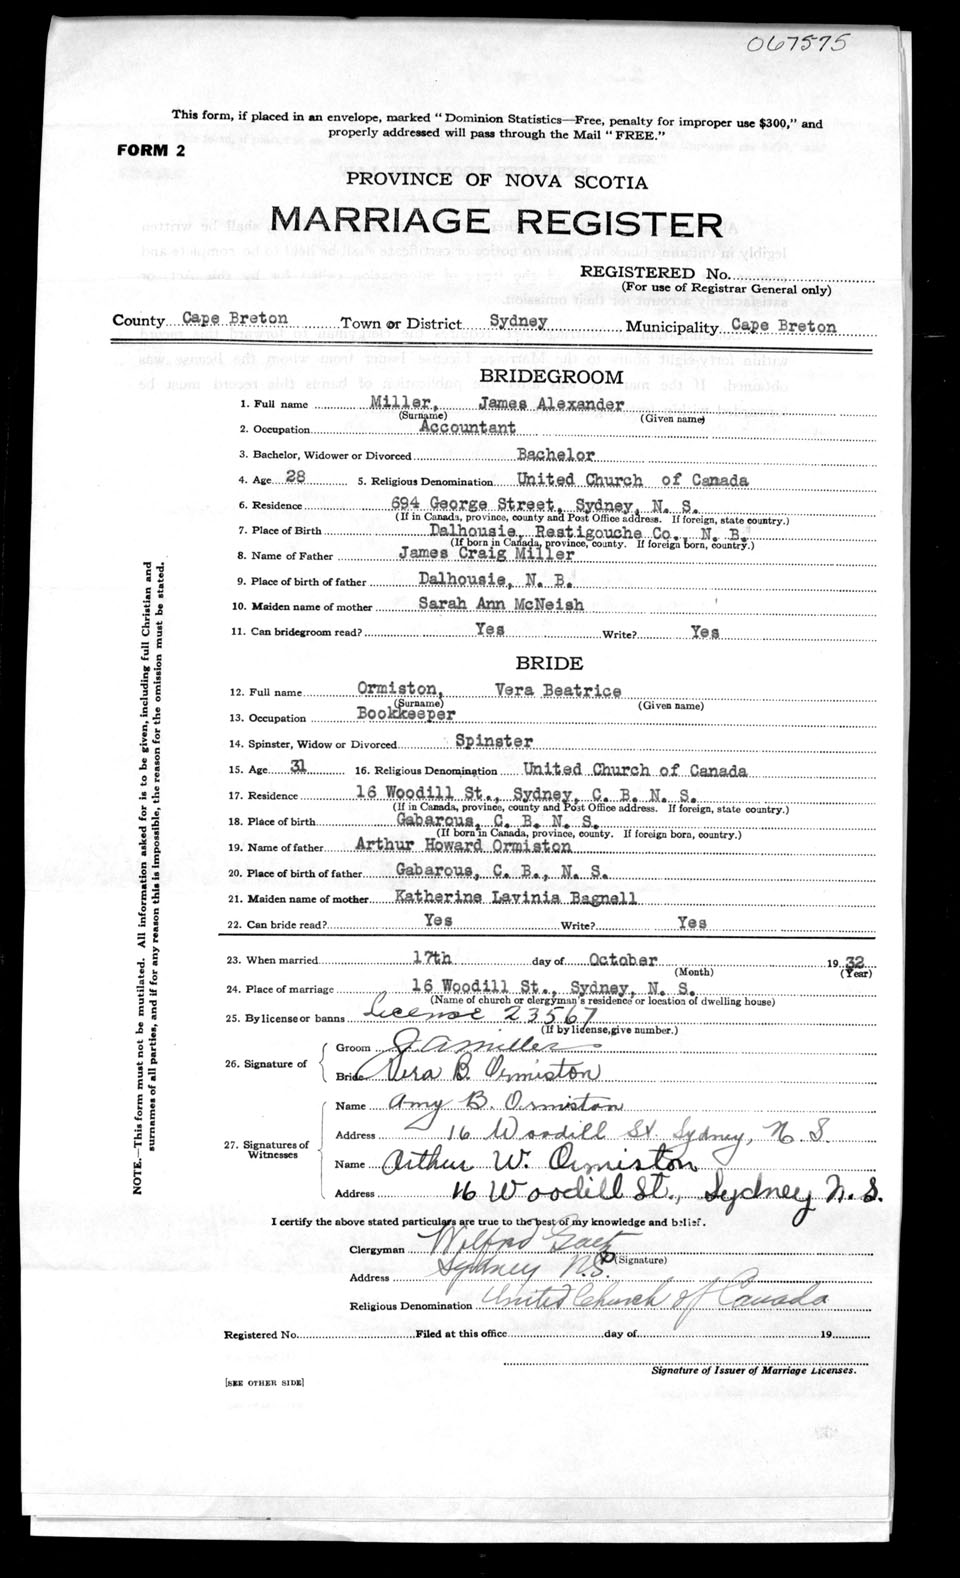 067575
This form, if placed in an envelope, marked "Dominion Statistics—Free, penalty for improper use $300," and
properly addressed will pass through the Mail "FREE."
FORM 2
PROVINCE OF NOVA SCOTIA
MARRIAGE REGISTER
REGISTERED No.
(For use of Registrar General only)
County Cape Breton Town or District Sydney Municipality Cape Breton
BRIDEGROOM
1. Full name Miller, James Alexander
(Surname) (Given name)
2. Occupation Accountant
3. Bachelor, Widower or Divorced Bachelor
4. Age 28 5. Religious Denomination United Church of Canada
6. Residence 694 George Street, Sydney, N. S.
(If in Canada, province, county and Post Office address. If foreign, state country.)
7. Place of Birth Dalhousie, Restigouche Co., N. B.
(If born in Canada, province, county. If foreign born, country.)
8. Name of Father James Craig Miller
9. Place of birth of father Dalhousie, N. B.
10. Maiden name of mother Sarah Ann McNeish
11. Can bridegroom read? Yes Write? Yes
BRIDE
12. Full name Ormiston, Vera Beatrice
(Surname) (Given name)
13. Occupation Bookkeeper
14. Spinster, Widow or Divorced Spinster
15. Age 31 16. Religious Denomination United Church of Canada
17. Residence 16 Woodill St., Sydney, C. B. N. S.
(If in Canada, province, county and Post Office address. If foreign, state country.)
18. Place of birth Gabarous, C. B. N. S.
(If born in Canada, province, county. If foreign born, country.)
19. Name of father Arthur Howard Ormiston
20. Place of birth of father Gabarous, C. B., N. S.
21. Maiden name of mother Katherine Lavinia Bagnell
22. Can bride read? Yes Write? Yes
23. When married 17th day of October 1932
(Month) (Year)
24. Place of marriage 16 Woodill St., Sydney, N. S.
(Name of church or clergyman's residence or location of dwelling house)
25. By license or banns License 23567
(If by license, give number.)
26. Signature of
Groom J A Miller
Bride Vera B. Ormiston
27. Signatures of Witnesses
Name Amy B. Ormiston
Address 16 Woodill St. Sydney, N. S.
Name Arthur W. Ormiston
Address 16 Woodill St., Sydney N. S.
I certify the above stated particulars are true to the best of my knowledge and belief.
Clergyman Wilfred Gaetz
(Signature)
Address Sydney N.S.
Religious Denomination United Church of Canada
Registered No. Filed at this office day of 19
Signature of Issuer of Marriage Licenses.
[SEE OTHER SIDE]
NOTE.—This form must not be mutilated. All information asked for is to be given, including full Christian and
surnames of all parties, and if for any reason this is impossible, the reason for the omission must be stated.